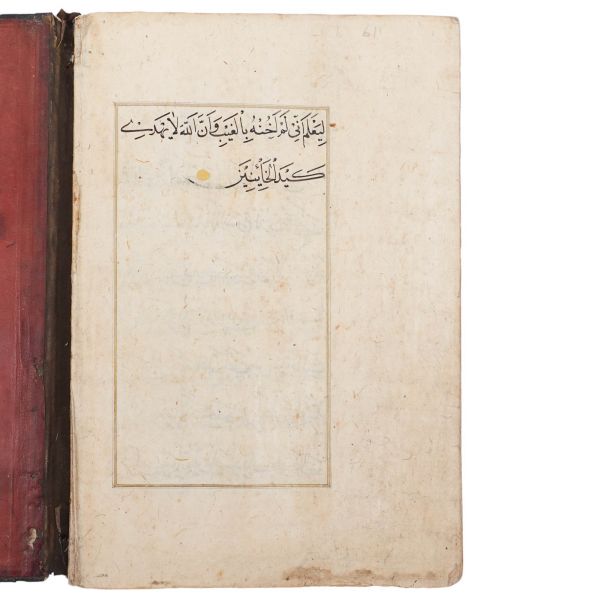 لِيَعْلَمَ أَنِّي لَمْ أَخُنْهُ بِالْغَيْبِ وَأَنَّ اللَّهَ لَا يَهْدِي
كَيْدَ الْخَائِنِينَ